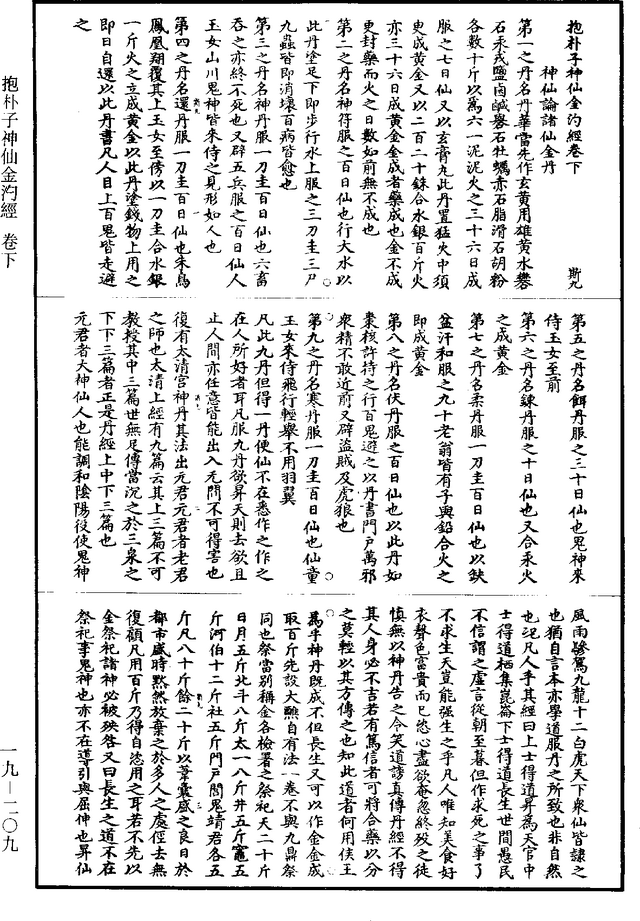 抱朴子神仙金汋經卷下　斯九
神仙論諸仙金丹
第一之丹名丹華當先作玄黃用雄黃水礬
石汞戎鹽鹵鹹礜石牡蠣赤石脂滑石胡粉
各數十斤以為六一泥泥火之三十六日成
服之七日仙又以玄膏丸此丹置猛火中須
臾成黃金又以二百二十銖合水銀百斤火
亦三十六日成黃金金成者藥成也金不成
更封藥而火之日數如前無不成也
第二之丹名神符服之百日仙也行大水以
此丹塗足下即步行水上服之三刀圭三尸
九蟲皆即消壞百病皆愈也
第三之丹名神丹服一刀圭百日仙也六畜
吞之亦終不死也又辟五兵服之百日仙人
玉女山川鬼神皆來侍之見形如人也
第四之丹名還丹服一刀圭百日仙也朱鳥
鳳凰翔覆其上玉女至傍以一刀圭合水銀
一斤火之立成黃金以此丹塗錢物上用之
即日自還以此丹書凡人目上百鬼皆走避
之
第五之丹名餌丹服之三十日仙也鬼神來
侍玉女至前
第六之丹名鍊丹服之十日仙也又合汞火
之成黃金
第七之丹名柔丹服一刀圭百日仙也以缺
盆汗和服之九十老翁皆有子與鉛合火之
即成黃金
第八之丹名伏丹服之百日仙也以此丹如
棗核許持之行百鬼避之以丹書門戶萬邪
眾精不敢近前又辟盜賊及虎狼也
第九之丹名寒丹服一刀圭百日仙也仙童
玉女來侍飛行輕舉不用羽翼
凡此九丹但得一丹便仙不在悉作之作之
在人所好者耳凡服九丹欲昇天則去欲且
止人間亦任意皆能出入无間不可得害也
復有太清宮神丹其法出元君元君者老君
之師也太清上經有九篇云其上三篇不可
教授其中三篇世無足傳當沉之於三泉之
下下三篇者正是丹經上中下三篇也
元君者大神仙人也能調和陰陽役使鬼神
風雨驂駕九龍十二白虎天下眾仙皆隸之
也猶自言本亦學道服丹之所致也非自然
也況凡人乎其經曰上士得道昇為天官中
士得道栖集崑崙下士得道長生世間愚民
不信謂之虛言從朝至暮但作求死之事了
不求生天豈能強生之乎凡人唯知美食好
衣聲色富貴而已恣心盡欲奄忽終歿之徒
慎無以神丹告之令笑道謗真傳丹經不得
其人身必不吉若有篤信者可將合藥以分
之莫輕以其方傳之也知此道者何用侯王
為乎神丹既成不但長生又可以作金金成
取百斤先設大醮自有法一卷不與九鼎祭
同也祭當別稱金各檢署之祭祀天二十斤
日月五斤北斗八斤太一八斤井五斤竈五
斤河伯十二斤社五斤門戶閭鬼靖君各五
斤凡八十斤餘二十斤以葦囊盛之良日於
都市盛時默然放棄之於多人之處徑去無
復顧凡用百斤乃得自恣用之耳若不先以
金祭祀諸神必被殃咎又曰長生之道不在
祭祀事鬼神也亦不在導引與屈伸也昇仙
抱朴子神仙金汋經　卷下
一九—二〇九